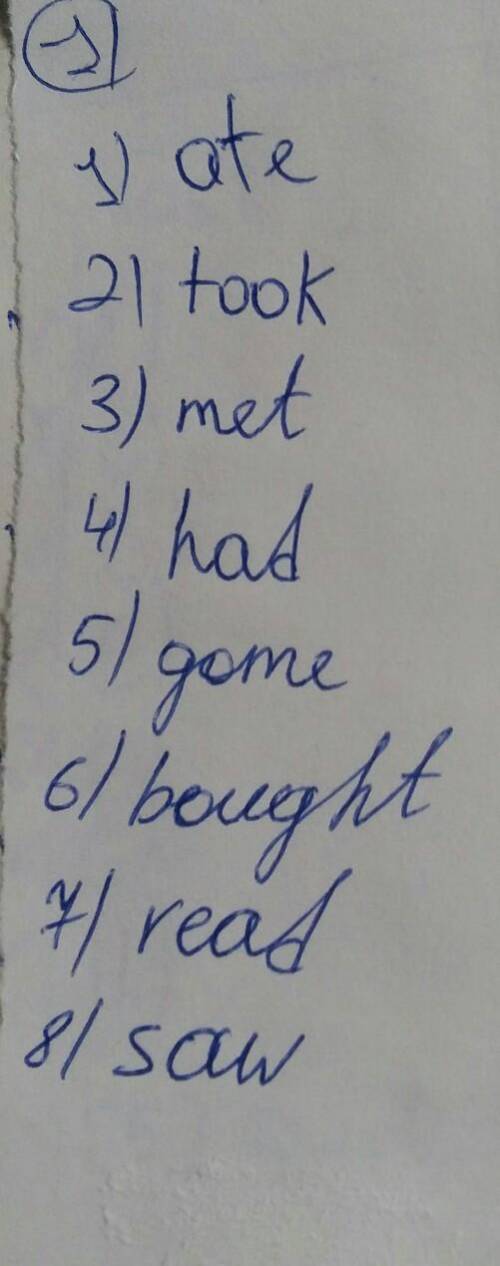 1
1) ate
2) took
3) met
4) had
5) gome
6) bought
7) read
8) saw